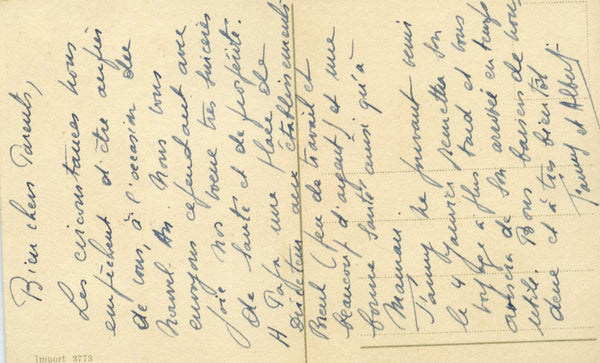 Bien chers Parents,
Les circonstances nous
empêchent d'être auprès
de vous, à l'occasion du
Nouvel-An. Nous vous
envoyons cependant avec
joie nos vœux très sincères
de santé et de prospérité.
A Papa une place de
Directeur aux établissements
Breuil (peu de travail et
beaucoup d'argent) et une
bonne santé ainsi qu'à
Maman.
Fanny ne pouvant venir
le 4 Janvier remettra son
voyage à plus tard et vous
avisera de son arrivée en temps
utile. Bons baisers de nous
deux et à très bientôt
Fanny et Albert
Import 3773